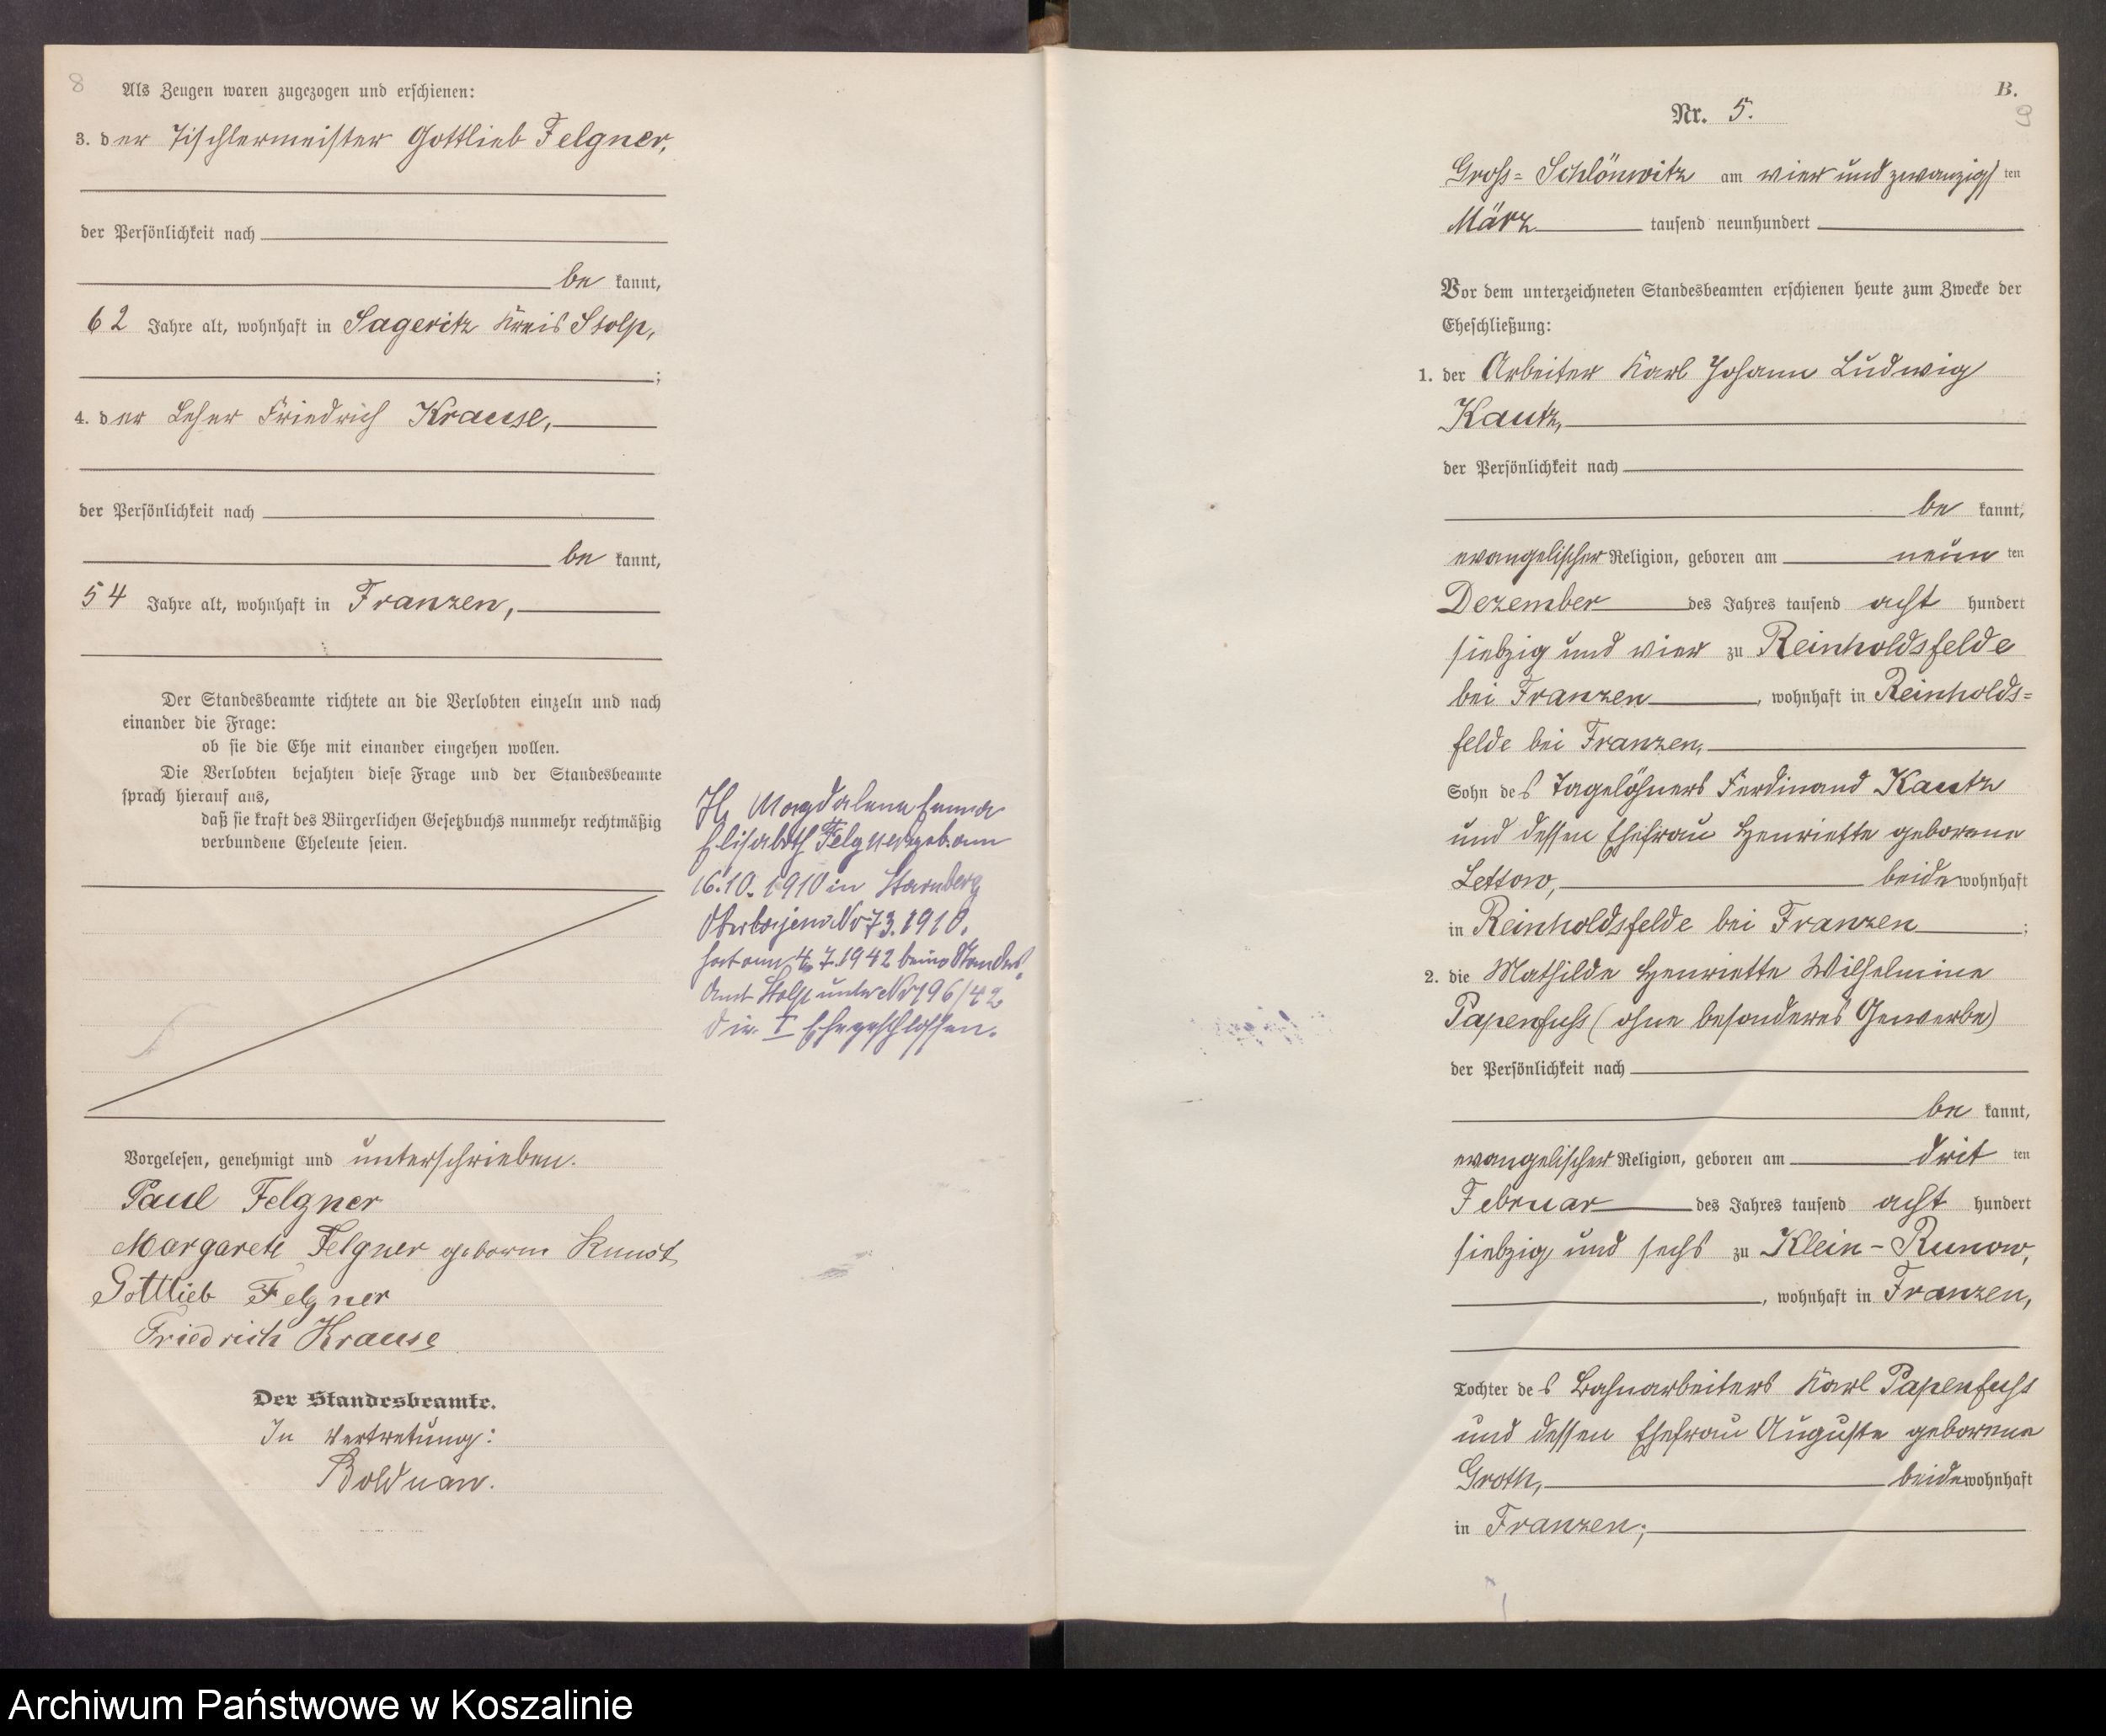 8
Als Zeugen waren zugezogen und erschienen:
3. der Tischlermeister Gottlieb Felgner,
der Persönlichkeit nach
be kannt,
62 Jahre alt, wohnhaft in Sageritz Kreis Stolp,
;
4. der Leher Friedrich Krause,
der Persönlichkeit nach
be kannt,
54 Jahre alt, wohnhaft in Franzen,
Der Standesbeamte richtete an die Verlobten einzeln und nach
einander die Frage:
ob sie die Ehe mit einander eingehen wollen.
Die Verlobten bejahten diese Frage und der Standesbeamte
sprach hierauf aus,
daß sie kraft des Bürgerlichen Gesetzbuchs nunmehr rechtmäßig
verbundene Eheleute seien.
Magdalena Emma
Elisabeth Felgner geb. am
16.10.1910 in Starnberg
Nr 73.1910.
hat am 4.7.1942 beim Standes
Amt Stolp unter Nr 196/42
die I Ehe geschlossen.
Vorgelesen, genehmigt und unterschrieben.
Paul Felgner
Margarete Felgner geborene Kunst
Gottlieb Felgner
Friedrich Krause
Der Standesbeamte.
In Vertretung:
Bolduan.
B.
9
Nr. 5.
Gross=Schlönwitz am vier und zwanzigs ten
März tausend neunhundert
Vor dem unterzeichneten Standesbeamten erschienen heute zum Zwecke der
Eheschließung:
1. der Arbeiter Karl Johann Ludwig
Kautz,
der Persönlichkeit nach
be kannt,
evangelischer Religion, geboren am neun ten
Dezember des Jahres tausend acht hundert
siebzig und vier zu Reinholdsfelde
bei Franzen, wohnhaft in Reinholds=
felde bei Franzen,
Sohn des Tagelöhners Ferdinand Kautz
und dessen Ehefrau Henriette geborene
Lettow, beide wohnhaft
in Reinholdsfelde bei Franzen ;
2. die Mathilde Henriette Wilhelmine
Papenfuss (ohne besonderes Gewerbe)
der Persönlichkeit nach
be kannt,
evangelischer Religion, geboren am drit ten
Februar des Jahres tausend acht hundert
siebzig und sechs zu Klein-Runow,
, wohnhaft in Franzen,
Tochter des Bahnarbeiters Karl Papenfuss
und dessen Ehefrau Auguste geborene
Groth, beide wohnhaft
in Franzen;
Archiwum Państwowe w Koszalinie